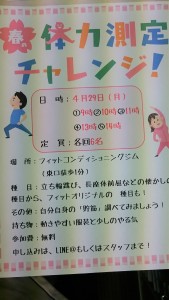 春 体力測定
チャレンジ！
日 時：４月29日（月）
①9時②10時③11時
④13時⑤14時
定 員：各回6名
場 所：フィットコンディショニングジム
（東口徒歩1分）
種 目：立ち幅跳び、長座体前屈などの懐かしの
種目から、フィットオリジナルの 種目も！
その他：自分自身の「貯筋」調べてみましょう！
持ち物：動きやすい服装と少しのやる気
参加費：無料
申し込みは、LINE@もしくはスタッフまで！